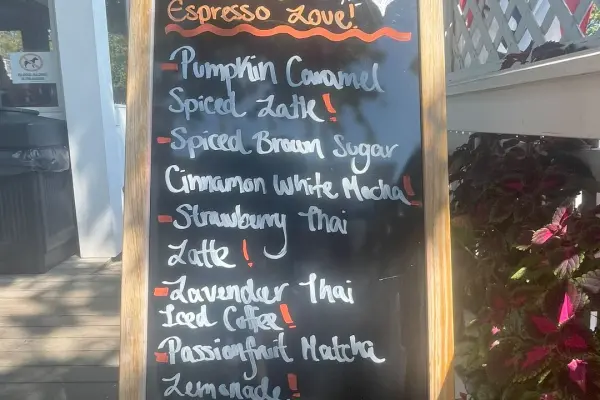 Espresso Love!
- Pumpkin Caramel
Spiced Latte!
- Spiced Brown Sugar
Cinnamon White Mocha!
- Strawberry Thai
Latte!
- Lavender Thai
Iced Coffee!
- Passionfruit Matcha
Lemonade!